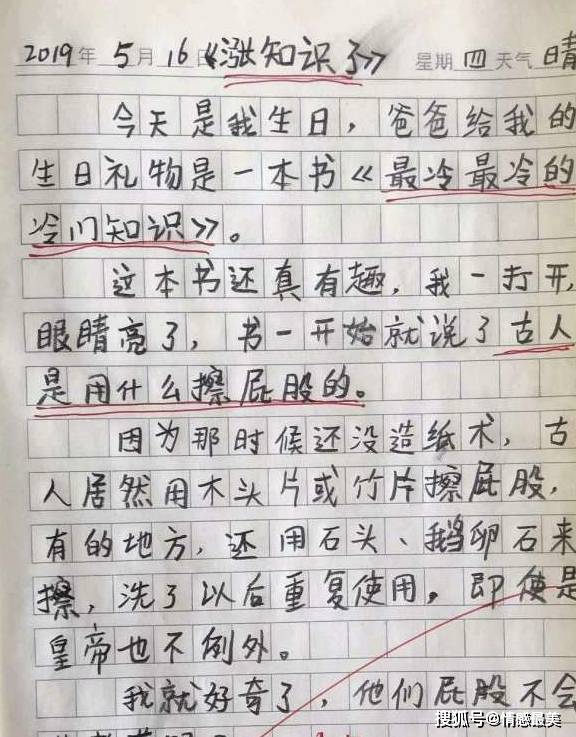 2019年 5月 16日《涨知识了》 星期 四 天气 晴
今天是我生日，爸爸给我的
生日礼物是一本书《最冷最冷的
冷门知识》。
这本书还真有趣，我一打开，
眼睛亮了，书一开始就说了古人
是用什么擦屁股的。
因为那时候还没造纸术，古
人居然用木头片或竹片擦屁股，
有的地方，还用石头、鹅卵石来
擦，洗了以后重复使用，即使是
皇帝也不例外。
我就好奇了，他们屁股不会
搜狐号@情感最美